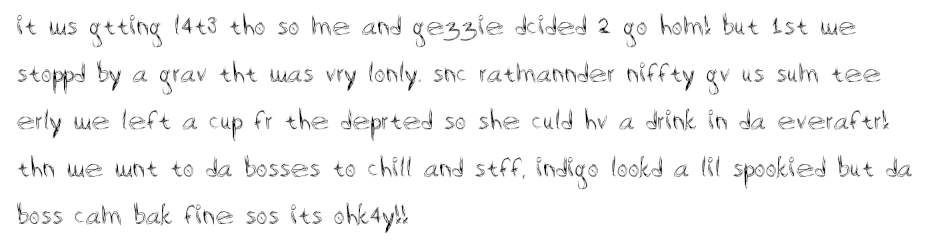 it ws gtting l4t3 tho so me and gezzie dcided 2 go hom! but 1st we
stoppd by a grav tht was vry lonly. snc ratmannder niffty gv us sum tee
erly we left a cup fr the deprted so she culd hv a drink in da everaftr!
thn we wnt to da bosses to chill and stff, indigo lookd a lil spookied but da
boss cam bak fine sos its ohk4y!!